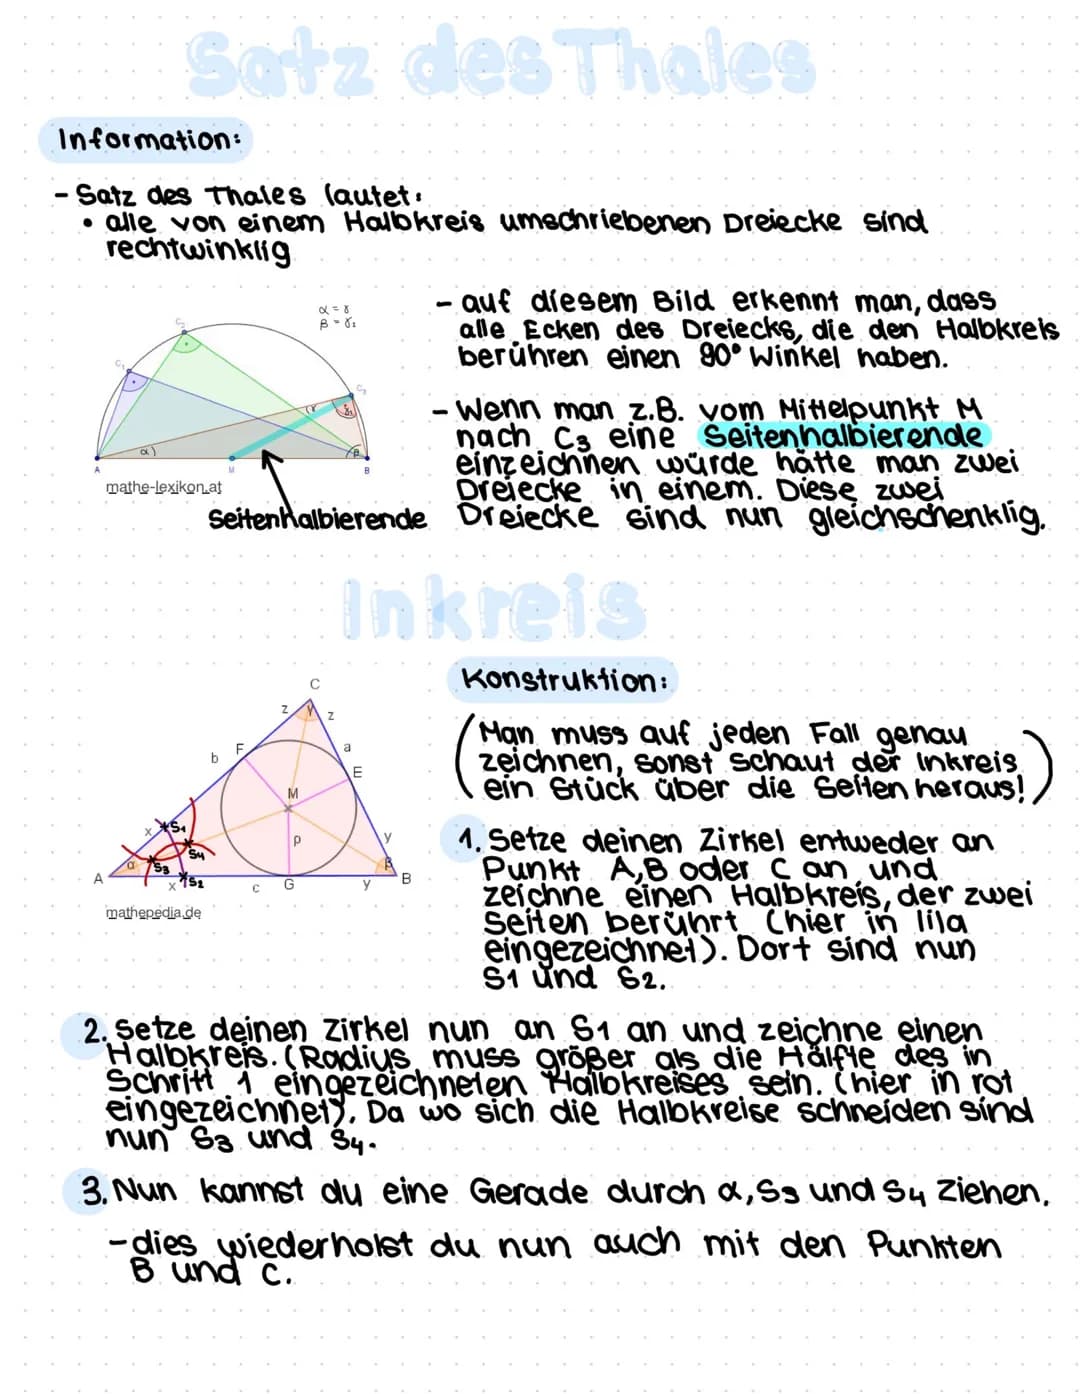 Satz des Thales
Information:
- Satz des Thales lautet:
• alle von einem Halbkreis umschriebenen Dreiecke sind
rechtwinklig
α = γ
β = γ₁
C₂
C₁
C₃
γ
γ₁
α
β
A
M
B
mathe-lexikon.at
Seitenhalbierende
- auf diesem Bild erkennt man, dass
alle Ecken des Dreiecks, die den Halbkreis
berühren einen 90° Winkel haben.
- Wenn man z.B. vom Mittelpunkt M
nach C₃ eine Seitenhalbierende
einzeichnen würde hätte man zwei
Dreiecke in einem. Diese zwei
Dreiecke sind nun gleichschenklig.
Inkreis
C
z
γ
z
b
F
a
E
M
x
S1
S4
p
y
α
S3
β
A
x
S2
c
G
y
B
mathepedia.de
Konstruktion:
(Man muss auf jeden Fall genau
zeichnen, sonst schaut der Inkreis
ein Stück über die Seiten heraus!)
1. Setze deinen Zirkel entweder an
Punkt A, B oder C an und
zeichne einen Halbkreis, der zwei
Seiten berührt (hier in lila
eingezeichnet). Dort sind nun
S1 und S2.
2. Setze deinen Zirkel nun an S1 an und zeichne einen
Halbkreis. (Radius muss größer als die Hälfte des in
Schritt 1 eingezeichneten Halbkreises sein. (hier in rot
eingezeichnet). Da wo sich die Halbkreise schneiden sind
nun S3 und S4.
3. Nun kannst du eine Gerade durch α, S3 und S4 ziehen.
- dies wiederholst du nun auch mit den Punkten
B und C.